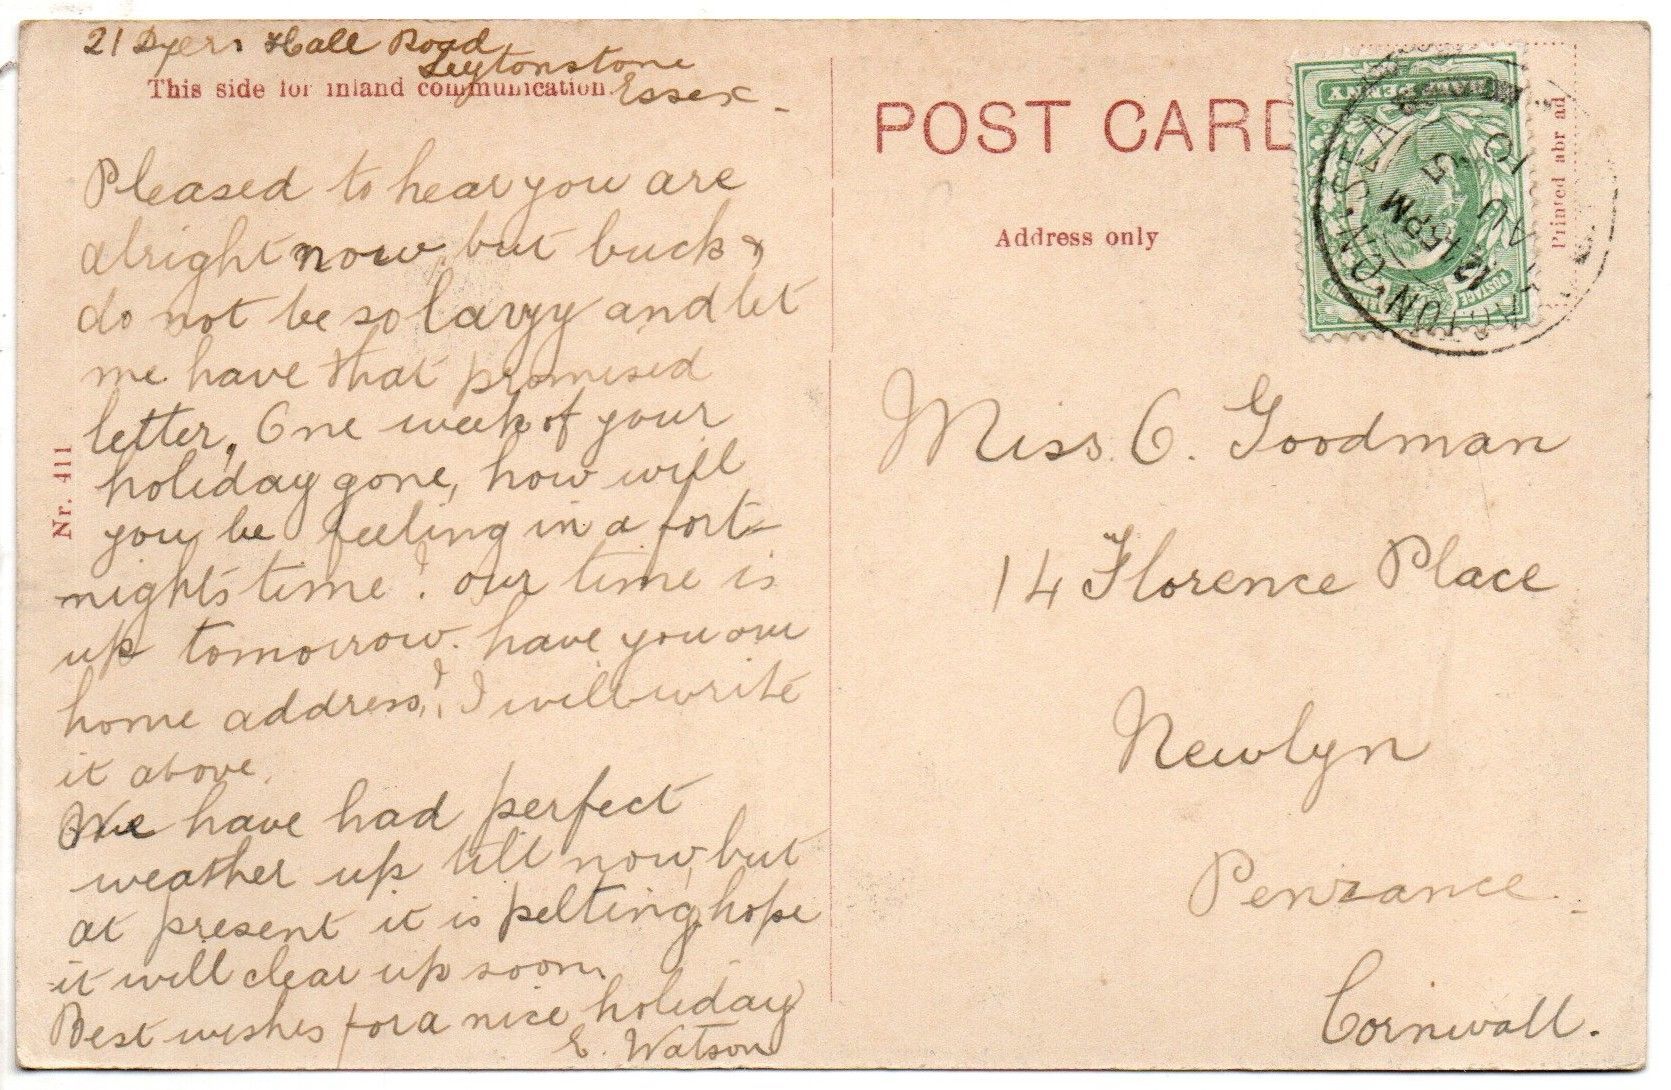 21 Dyers Hall Road
Leytonstone
This side for inland communication Essex -
Pleased to hear you are
alright now, but buck &
do not be so lazy and let
me have that promised
letter, One week of your
holiday gone, how will
you be feeling in a fort-
nights time? our time is
up tomorrow. have you our
home address? I will write
it above.
We have had perfect
weather up till now, but
at present it is pelting, hope
it will clear up soon.
Best wishes for a nice holiday
E. Watson
Nr. 411
POST CARD
Address only
Printed abr ad
CLACTON-ON-SEA
12 15PM
AU 5
10
POSTAGE
Miss C. Goodman
14 Florence Place
Newlyn
Penzance
Cornwall.